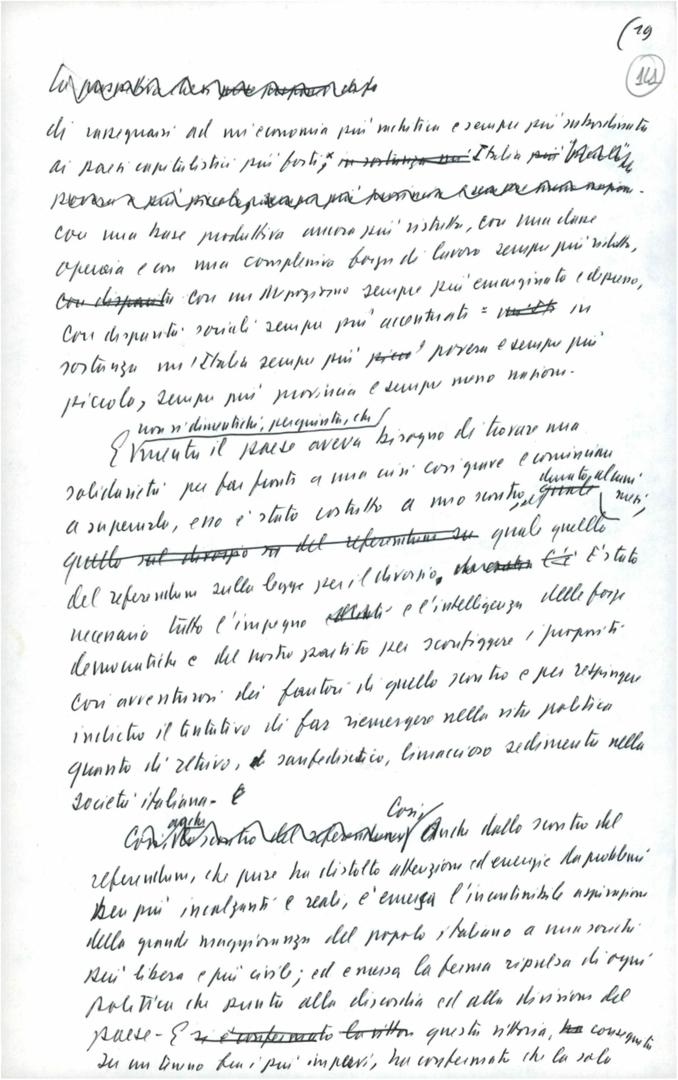 19
141
di rassegnarsi ad un'economia più ristretta e sempre più subordinata
ai paesi capitalistici più forti, in sostanza un' Italia più
con una base produttiva ancora più ristretta, con una classe
operaia e con una complessiva forza di lavoro sempre più ridotta,
con disparità con un Mezzogiorno sempre più emarginato e depresso,
con disparità sociali sempre più accentuate = in
sostanza un'Italia sempre più povera e sempre più
piccola, sempre più provincia e sempre meno nazione.
non si dimentichi, per giunta, che
E mentre il paese aveva bisogno di trovare una
solidarietà per far fronte a una crisi così grave e cominciare
durato alcuni mesi,
a superarla, esso è stato costretto a uno scontro,
quello sul divorzio del referendum su quale quello
del referendum sulla legge per il divorzio. È stato
necessario tutto l'impegno e l'intelligenza delle forze
democratiche e del nostro partito per sconfiggere i propositi
così avventurosi dei fautori di quello scontro e per respingere
indietro il tentativo di far riemergere nella vita politica
quanto di retrivo, sanfedistico, limaccioso sedimenta nella
società italiana. E
Così, anche scontro del referendum Così Anche dallo scontro del
referendum, che pure ha distolto attenzione ed energie da problemi
ben più incalzanti e reali, è emersa l'incontenibile aspirazione
della grande maggioranza del popolo italiano a una società
più libera e più civile; ed emersa la ferma ripulsa di ogni
politica che punta alla discordia ed alla divisione del
paese. E si è confermato la vittoria questa vittoria, ha conseguita
su un terreno fra i più impervi, ha confermato che la sola